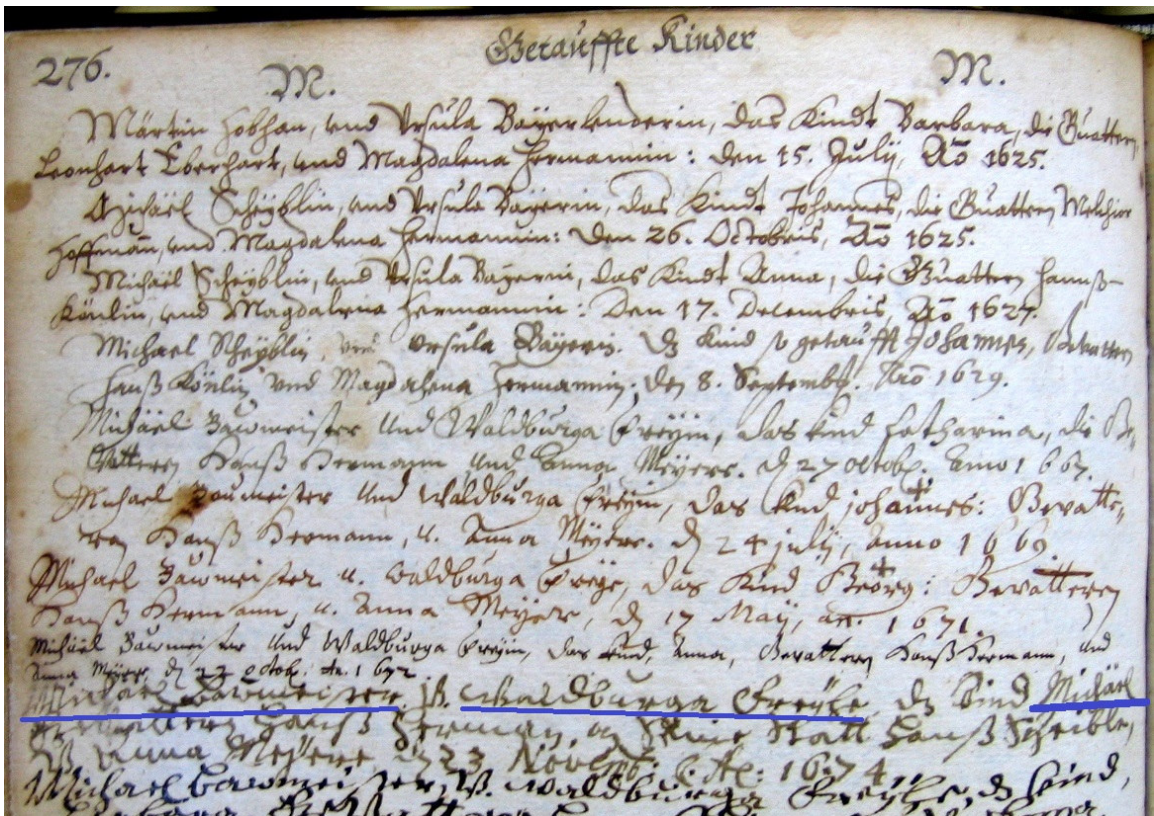 276.
Getauffte Kinder
M. M.
Martin Hobhan, und Ursula Bayerlenderin, das Kindt Barbara, die Gvattern,
Leonhart Eberhart, und Magdalena Hermannin: Den 15. July, Aõ 1625.
Michaël Scheyblin, und Ursula Bayerin, das Kindt Johannes, die Gvattern Melchior
Hoffmañ, und Magdalena Hermannin: Den 26. Octobris, Aõ 1625.
Michaël Scheyblin, und Ursula Bayerin, das Kindt Anna, die Gvattern Hannß
Könlin, und Magdalena Hermannin: Den 17. Decembris, Aõ 1627.
Michael Scheyblin, und Ursula Bayerin. dz Kind so getaufft Johannes, Gevattern
Hanß Könlin und Magdalena Hermannin; den 8. Septembr. Aõ 1629.
Michaël Bawmeister und Waldburga Freyin, das Kind Catharina, die Ge-
vattern Hanß Hermann und Anna Meyere. d 27 octob. anno 1667.
Michael Baumeister und Waldburga Freyin, das Kind Johannes: Gevatte-
ren Hanß Hermann, u. Anna Meyere. d 24 july, anno 1669.
Michael Bawmeister u. Waldburga Freye, das Kind Geörg: Gevatteren
Hanß Hermann, u. Anna Meyere, d 17 May, an. 1671.
Michaël Bawmeister und Waldburga Freyin, das Kind, Anna, Gevattern Hanß Hermann, und
Anna Meyere, d 23 octob. an. 1672
Michael Bawmeister, V. Waldburga Freyhe dz Kind Michäel
Gevattern Hanß Herman, an Seine Statt Hanß Scheible,
V. Anna Meyere d 23 Novemb: Ao: 1674.
Michael Bawmeister, V. Waldburga Freyhe, dz Kind,